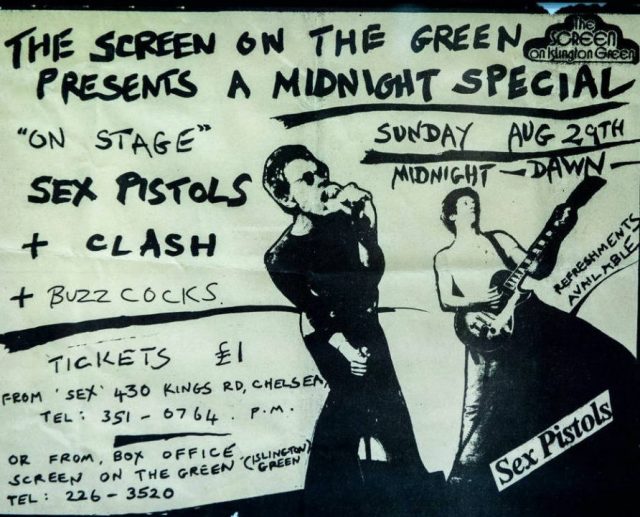 THE SCREEN ON THE GREEN
PRESENTS A MIDNIGHT SPECIAL
The
SCREEN
on Islington Green
"ON STAGE"
SEX PISTOLS
+ CLASH
+ BUZZCOCKS.
SUNDAY AUG 29TH
MIDNIGHT — DAWN —
REFRESHMENTS
AVAILABLE
TICKETS £1
FROM 'SEX' 430 KINGS RD, CHELSEA,
TEL: 351 - 0764. P.M.
OR FROM, BOX OFFICE
SCREEN ON THE GREEN (ISLINGTON
GREEN)
TEL: 226-3520
Sex Pistols